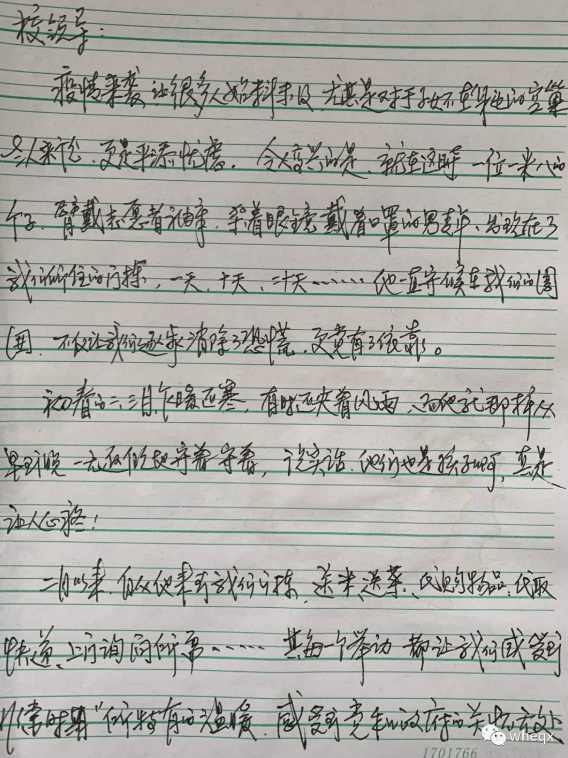 校领导:
疫情来袭,让很多人始料未及,尤其是对于子女不在身边的空巢
老人来说,更是平添忧虑。令人高兴的是,就在这时一位一米八的
个子,臂戴志愿者袖章,架着眼镜戴着口罩的男青年,出现在了
我们所住的门栋,一天,十天,二十天……他一直守候在我们的周
围,不仅让我们逐步消除了恐慌,更觉有了依靠。
初春的二、三月乍暖还寒,有时还夹着风雨,而他就那样从
早到晚一无返顾地守着守着,说实话,他们也是孩子啊,真是
让人心疼!
二月以来,自从他来到我们门栋,送米、送菜、代购物品,代取
快递、上门询问所需……其每一个举动都让我们感受到
非常时期"所特有的温暖,感受到党和政府的关怀无处
wheqx
1701766